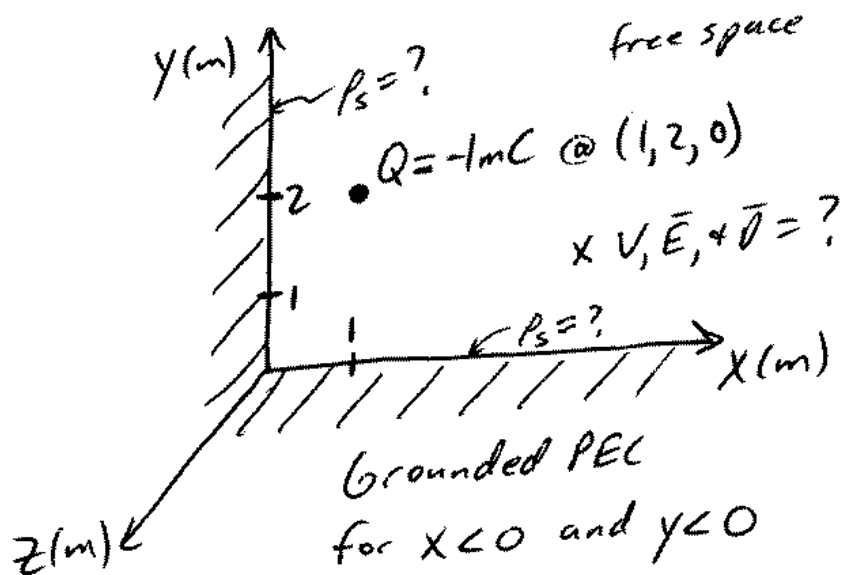 free space
y(m)
ρs=?
Q=-1mC @ (1,2,0)
2
x V, Ē, + D̄ = ?
1
1
ρs=?
x(m)
Grounded PEC
for x<0 and y<0
z(m)